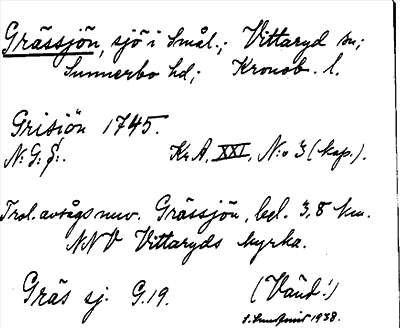 Grässjön, sjö i Smål.; Vittaryd sn;
Sunnerbo hd; Kronob. l.
Grisiön 1745.
N: G: S:. Kr. A. XXI, N:o 3 (kap.).
Trol. avtågs nuv. Grässjön, bel. 3,8 km.
NNV Vittaryds kyrka.
Gräs sj. G.19. (Vänd!)
1938.